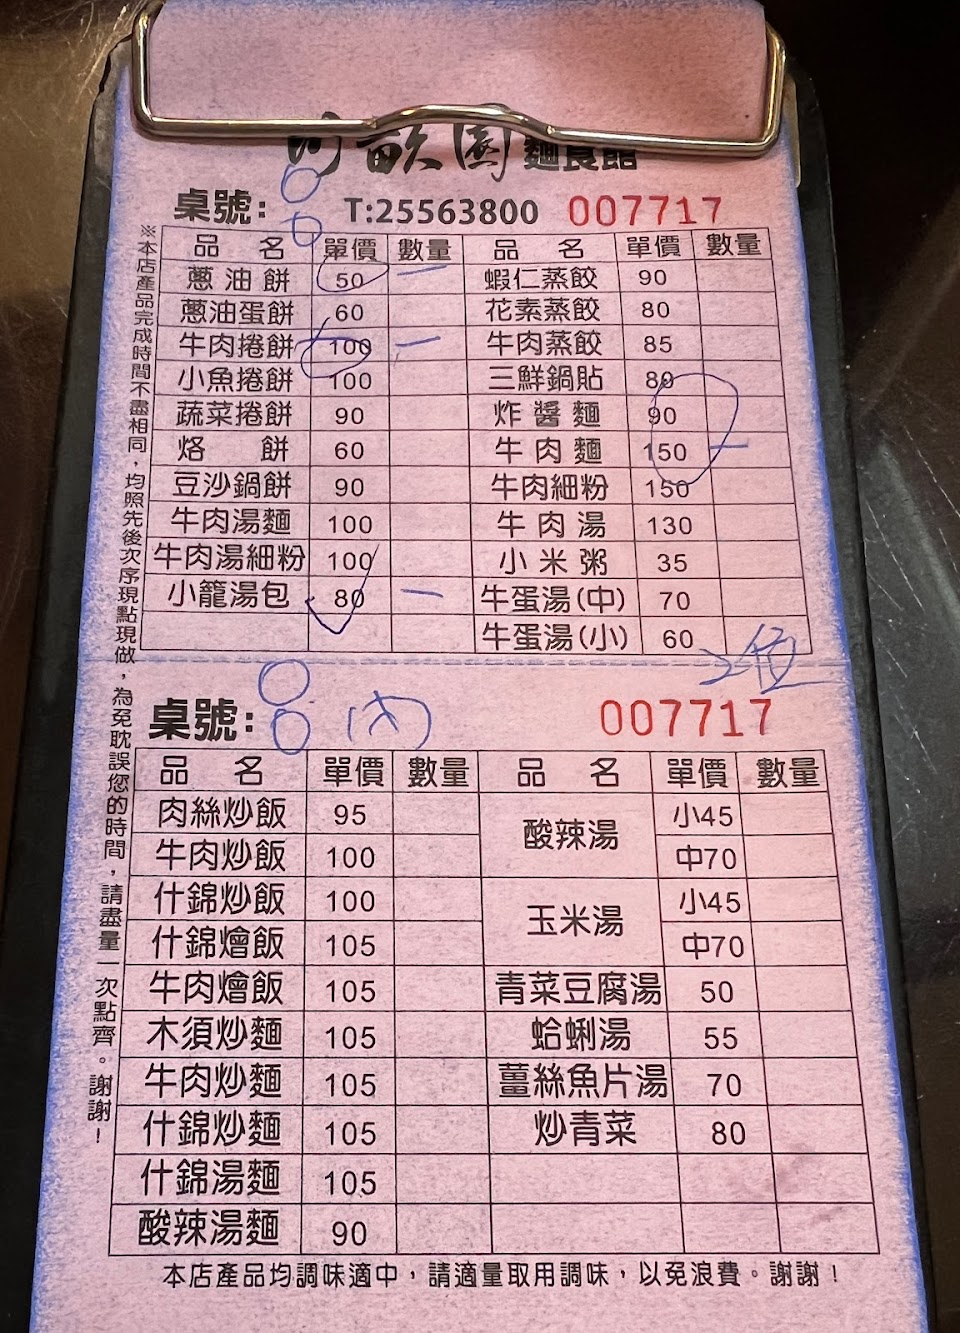 畝園 麵食館
桌號: 8 T:25563800 007717
品名 單價 數量 品名 單價 數量
蔥油餅 50 一 蝦仁蒸餃 90
蔥油蛋餅 60 花素蒸餃 80
牛肉捲餅 100 一 牛肉蒸餃 85
小魚捲餅 100 三鮮鍋貼 80
蔬菜捲餅 90 炸醬麵 90
烙餅 60 牛肉麵 150 一
豆沙鍋餅 90 牛肉細粉 150
牛肉湯麵 100 牛肉湯 130
牛肉湯細粉 100 小米粥 35
小籠湯包 80 一 牛蛋湯(中) 70
牛蛋湯(小) 60
2位
桌號: 8 (內) 007717
品名 單價 數量 品名 單價 數量
肉絲炒飯 95 酸辣湯 小45
牛肉炒飯 100 中70
什錦炒飯 100 玉米湯 小45
什錦燴飯 105 中70
牛肉燴飯 105 青菜豆腐湯 50
木須炒麵 105 蛤蜊湯 55
牛肉炒麵 105 薑絲魚片湯 70
什錦炒麵 105 炒青菜 80
什錦湯麵 105
酸辣湯麵 90
本店產品均調味適中，請適量取用調味，以免浪費。謝謝！
※本店產品完成時間不盡相同，均照先後次序現點現做，為免耽誤您的時間，請盡量一次點齊。謝謝！